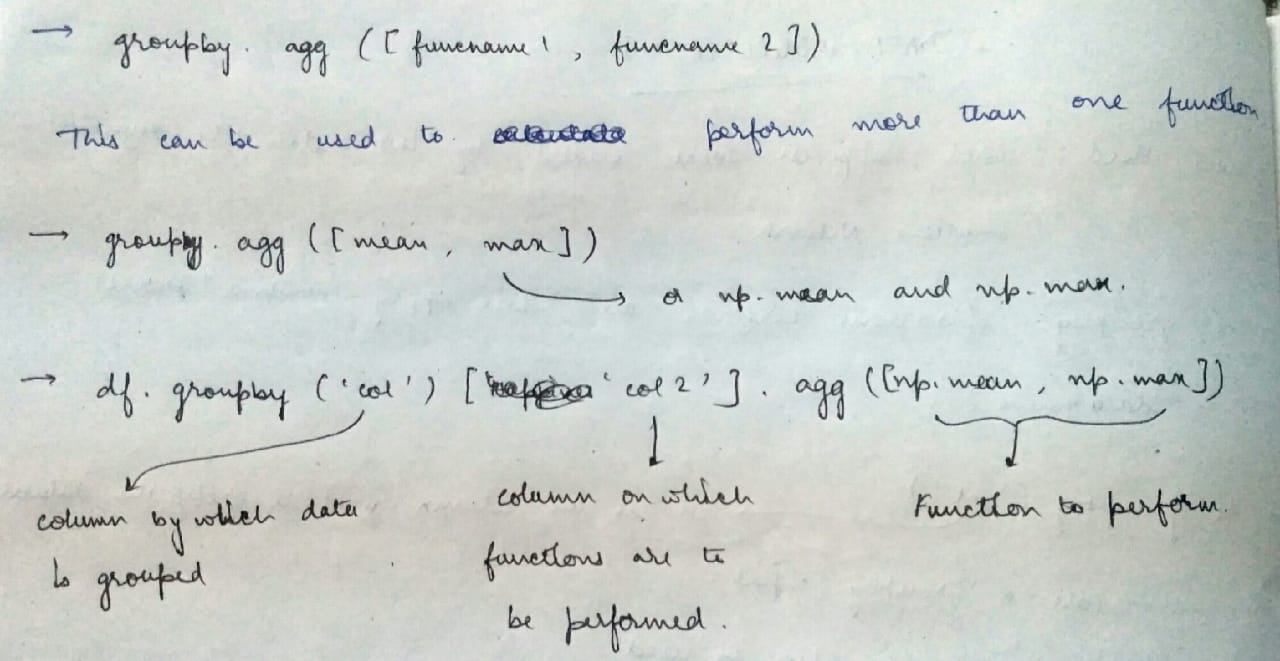 → groupby. agg ([ funcname 1 , funcname 2 ])
This can be used to perform more than one function
→ groupby. agg ([ mean , max ])
or np.mean and np.max.
→ df. groupby ('col') [ 'col 2' ] . agg ([np.mean , np.max])
column by which data
is grouped
column on which
functions are to
be performed.
Function to perform.